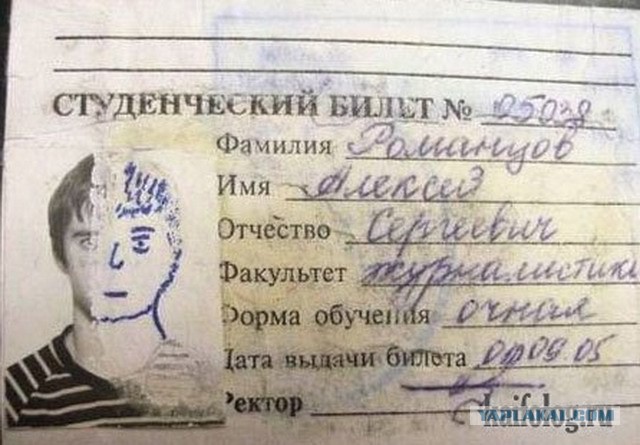 СТУДЕНЧЕСКИЙ БИЛЕТ № 25038
Фамилия Романцов
Имя Алексей
Отчество Сергеевич
Факультет журналистики
Форма обучения очная
Дата выдачи билета 01.09.05
Ректор
YAPLAKAL.COM
kaifolog.ru